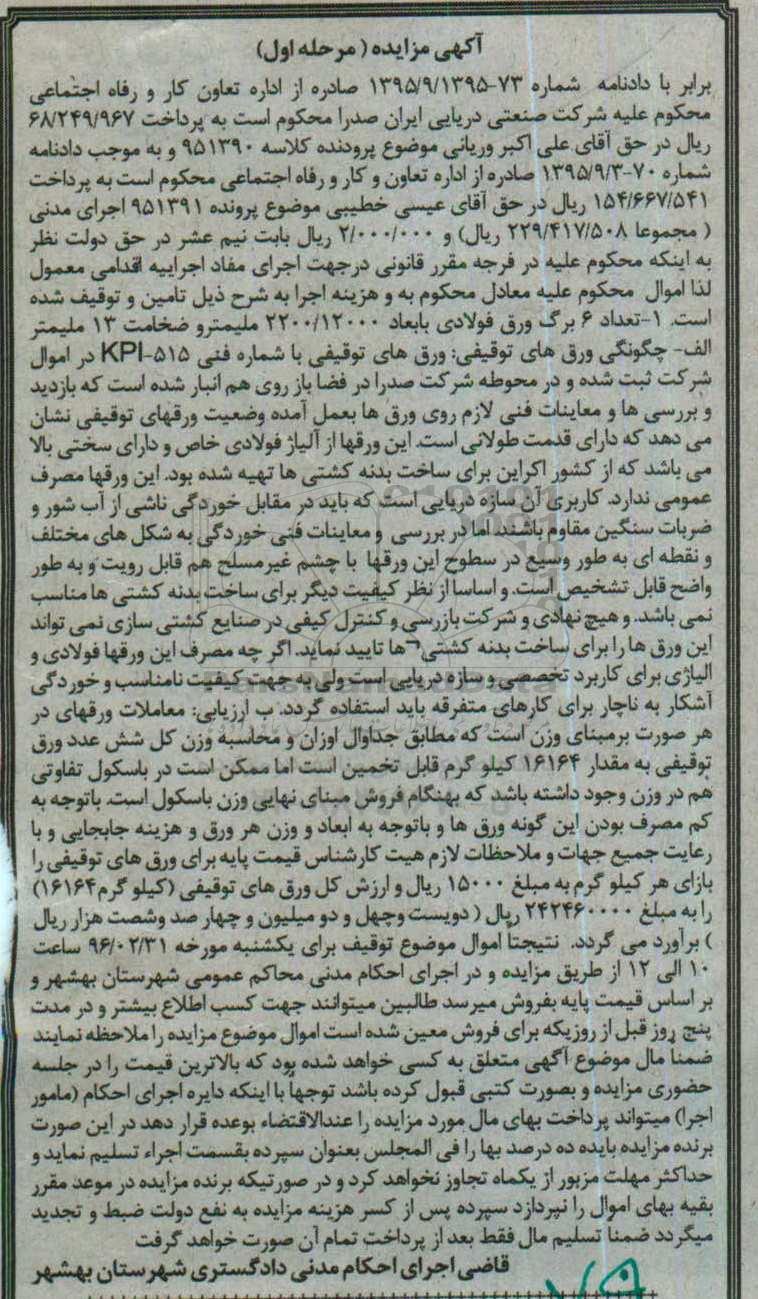 آگهی مزایده ( مرحله اول)
برابر با دادنامه شماره ۷۳-۱۳۹۵/۹/۱۳۹۵ صادره از اداره تعاون کار و رفاه اجتماعی
محکوم علیه شرکت صنعتی دریایی ایران صدرا محکوم است به پرداخت ۶۸/۲۴۹/۹۶۷
ریال در حق آقای علی اکبر وریانی موضوع پرودنده کلاسه ۹۵۱۳۹۰ و به موجب دادنامه
شماره ۷۰-۱۳۹۵/۹/۳ صادره از اداره تعاون و کار و رفاه اجتماعی محکوم است به پرداخت
۱۵۴/۶۶۷/۵۴۱ ریال در حق آقای عیسی خطیبی موضوع پرونده ۹۵۱۳۹۱ اجرای مدنی
( مجموعا ۲۲۹/۴۱۷/۵۰۸ ریال) و ۲/۰۰۰/۰۰۰ ریال بابت نیم عشر در حق دولت نظر
به اینکه محکوم علیه در فرجه مقرر قانونی درجهت اجرای مفاد اجراییه اقدامی معمول
لذا اموال محکوم علیه معادل محکوم به و هزینه اجرا به شرح ذیل تامین و توقیف شده
است. ۱-تعداد ۶ برگ ورق فولادی بابعاد ۲۲۰۰/۱۲۰۰۰ ملیمترو ضخامت ۱۳ ملیمتر
الف- چگونگی ورق های توقیفی: ورق های توقیفی با شماره فنی KPI-۵۱۵ در اموال
شرکت ثبت شده و در محوطه شرکت صدرا در فضا باز روی هم انبار شده است که بازدید
و بررسی ها و معاینات فنی لازم روی ورق ها بعمل آمده وضعیت ورقهای توقیفی نشان
می دهد که دارای قدمت طولانی است. این ورقها از آلیاژ فولادی خاص و دارای سختی بالا
می باشد که از کشور اکراین برای ساخت بدنه کشتی ها تهیه شده بود. این ورقها مصرف
عمومی ندارد. کاربری آن سازه دریایی است که باید در مقابل خوردگی ناشی از آب شور و
ضربات سنگین مقاوم باشند اما در بررسی و معاینات فنی خوردگی به شکل های مختلف
و نقطه ای به طور وسیع در سطوح این ورقها با چشم غیرمسلح هم قابل رویت و به طور
واضح قابل تشخیص است. و اساسا از نظر کیفیت دیگر برای ساخت بدنه کشتی ها مناسب
نمی باشد. و هیچ نهادی و شرکت بازرسی و کنترل کیفی در صنایع کشتی سازی نمی تواند
این ورق ها را برای ساخت بدنه کشتی ها تایید نماید. اگر چه مصرف این ورقها فولادی و
الیاژی برای کاربرد تخصصی و سازه دریایی است ولی به جهت کیفیت نامناسب و خوردگی
آشکار به ناچار برای کارهای متفرقه باید استفاده گردد. ب ارزیابی: معاملات ورقهای در
هر صورت برمبنای وزن است که مطابق جداوال اوزان و محاسبه وزن کل شش عدد ورق
توقیفی به مقدار ۱۶۱۶۴ کیلو گرم قابل تخمین است اما ممکن است در باسکول تفاوتی
هم در وزن وجود داشته باشد که بهنگام فروش مبنای نهایی وزن باسکول است. باتوجه به
کم مصرف بودن این گونه ورق ها و باتوجه به ابعاد و وزن هر ورق و هزینه جابجایی و با
رعایت جمیع جهات و ملاحظات لازم هیت کارشناس قیمت پایه برای ورق های توقیفی را
بازای هر کیلو گرم به مبلغ ۱۵۰۰۰ ریال و ارزش کل ورق های توقیفی (کیلو گرم۱۶۱۶۴)
را به مبلغ ۲۴۲۴۶۰۰۰۰ ریال ( دویست وچهل و دو میلیون و چهار صد وشصت هزار ریال
) برآورد می گردد. نتیجتاً اموال موضوع توقیف برای یکشنبه مورخه ۹۶/۰۲/۳۱ ساعت
۱۰ الی ۱۲ از طریق مزایده و در اجرای احکام مدنی محاکم عمومی شهرستان بهشهر و
بر اساس قیمت پایه بفروش میرسد طالبین میتوانند جهت کسب اطلاع بیشتر و در مدت
پنج روز قبل از روزیکه برای فروش معین شده است اموال موضوع مزایده را ملاحظه نمایند
ضمناً مال موضوع آگهی متعلق به کسی خواهد شده بود که بالاترین قیمت را در جلسه
حضوری مزایده و بصورت کتبی قبول کرده باشد توجهاً با اینکه دایره اجرای احکام (مامور
اجرا) میتواند پرداخت بهای مال مورد مزایده را عندالاقتضاء بوعده قرار دهد در این صورت
برنده مزایده بایده ده درصد بها را فی المجلس بعنوان سپرده بقسمت اجراء تسلیم نماید و
حداکثر مهلت مزبور از یکماه تجاوز نخواهد کرد و در صورتیکه برنده مزایده در موعد مقرر
بقیه بهای اموال را نپردازد سپرده پس از کسر هزینه مزایده به نفع دولت ضبط و تجدید
میگردد ضمناً تسلیم مال فقط بعد از پرداخت تمام آن صورت خواهد گرفت
قاضی اجرای احکام مدنی دادگستری شهرستان بهشهر